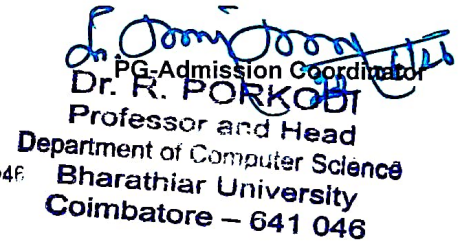 PG-Admission Coordinator
Dr. R. PORKODI
Professor and Head
Department of Computer Science
046 Bharathiar University
Coimbatore – 641 046